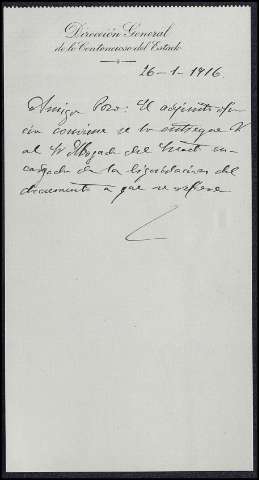 Dirección General
de lo Contencioso del Estado
26-1-1916.
Amigo Pozo: El adjunto ofi
cio conviene se lo entregue V
al Sr Abogado del Estado en-
cargado de la liquidacion del
documento a que se refiere